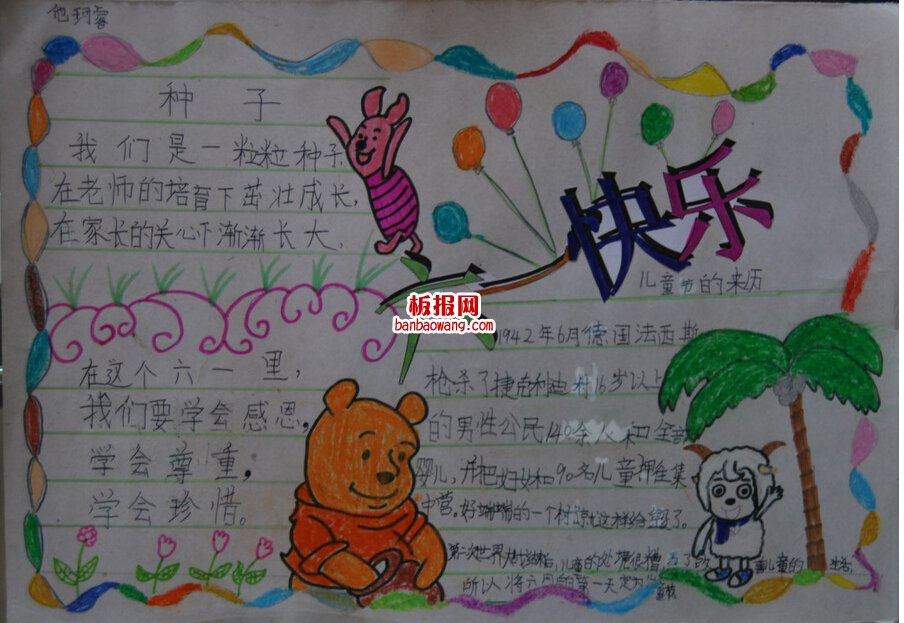 种子
我们是一粒粒种子
在老师的培育下茁壮成长,
在家长的关心下渐渐长大,
在这个六一里,
我们要学会感恩,
学会尊重,
学会珍惜。
六一快乐
板报网
banbaowang.com
儿童节的来历
1942年6月德国法西斯
枪杀了捷克利迪村16岁以上
的男性公民140余人和全部
婴儿,并把妇女和90名儿童押往集
中营。好端端的一个村就这样给毁了。
第二次世界大战结束后,儿童的处境很糟
所以将六月的第一天定为儿童节